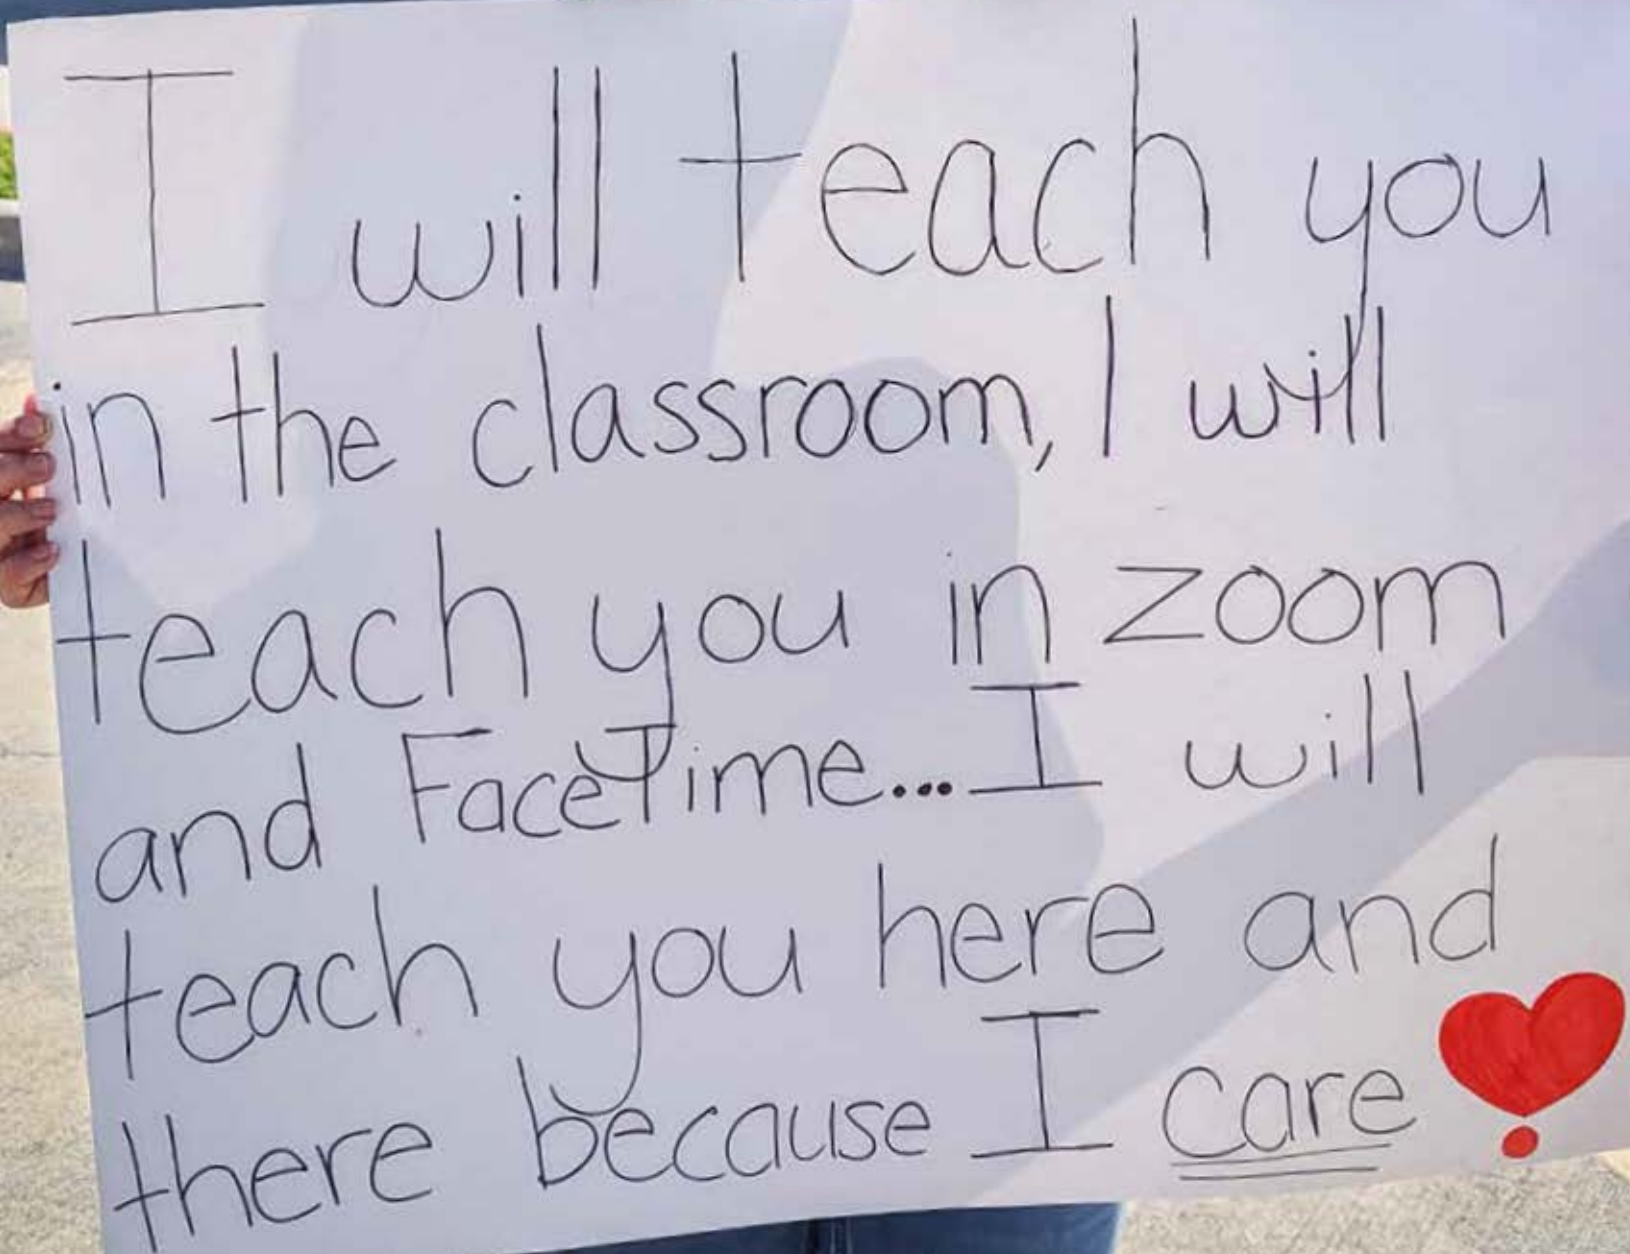 I will teach you
in the classroom, I will
teach you in zoom
and FaceTime... I will
teach you here and
there because I care